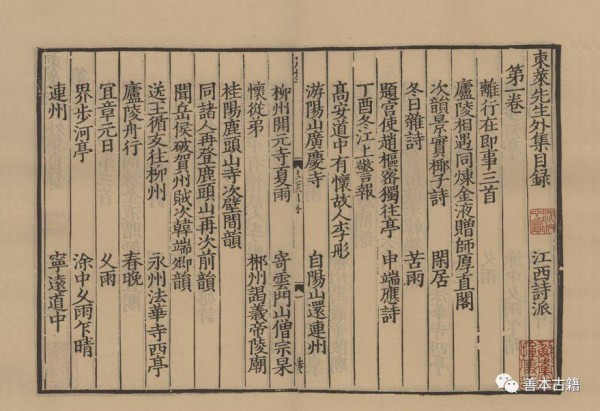 東萊先生外集目録 江西詩派
第一卷
離行在即事三首
廬陵相遇同煉金液贈師厚直閣
次韻景實椰子詩 閑居
冬日雜詩 苦雨
題宫使趙樞密獨往亭 申端應詩
丁酉冬江上警報
髙安道中有懷故人李彤
游陽山廣慶寺 自陽山還連州
柳州開元寺夏雨 寄雲門山僧宗杲
懷從弟 郴州謁義帝陵廟
桂陽鹿頭山寺次壁間韻
同諸人再登鹿頭山再次前韻
聞岳侯破賀州賊次韓端卿韻
送王循友往柳州 永州法華寺西亭
廬陵舟行 春晚
宜章元日 夂雨
界步河亭 涂中夂雨乍晴
連州 寧遠道中
善本古籍